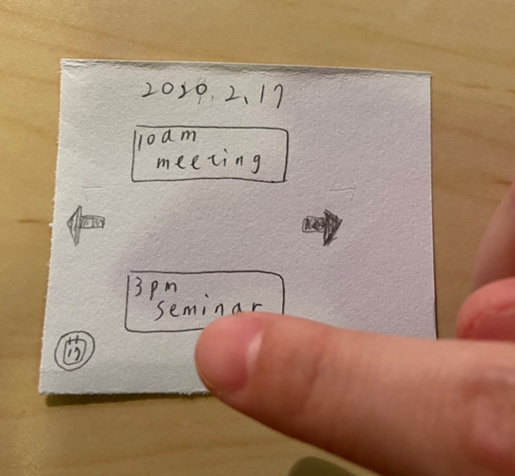 2020.2.17
10am
meeting
3pm
seminar
17